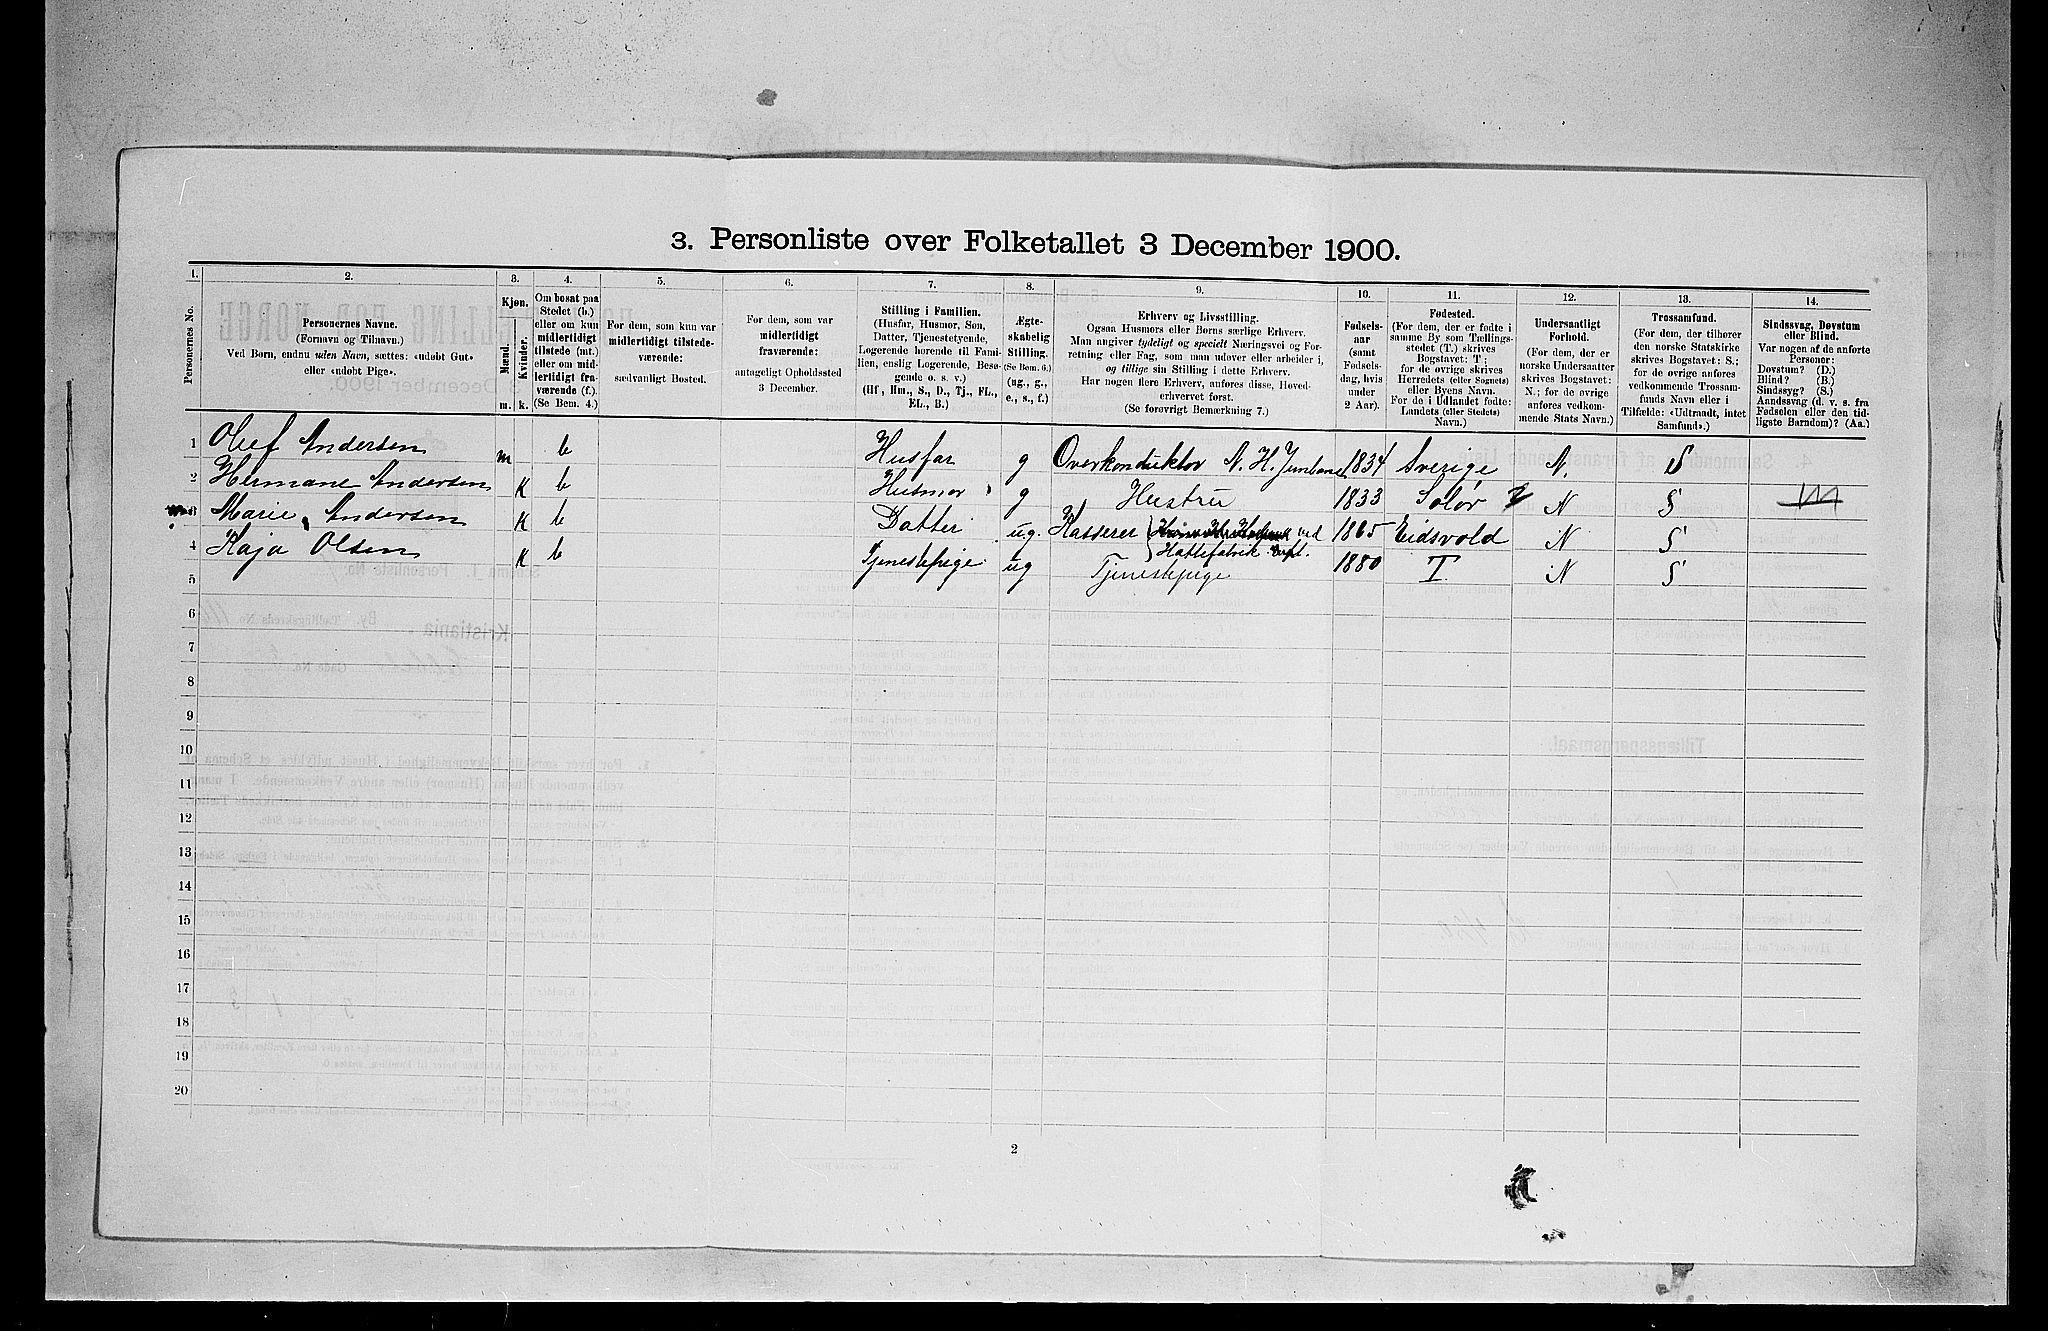 3. Personliste over Folketallet 3 December 1900.
1. 2. 3. 4. 5. 6. 7. 8. 9. 10. 11. 12. 13. 14.
Personernes No.
Personernes Navne.
(Fornavn og Tilnavn.)
Ved Børn, endnu uden Navn, sættes: «udøbt Gut»
eller «udøbt Pige».
Kjøn.
Mænd.
Kvinder.
m. k.
Om bosat paa
Stedet (b.)
eller om kun
midlertidigt
tilstede (mt.)
eller om mid-
lertidigt fra-
værende (f.).
(Se Bem. 4.)
For dem, som kun var
midlertidigt tilstede-
værende:
sædvanligt Bosted.
For dem, som var
midlertidigt
fraværende:
antageligt Opholdssted
3 December.
Stilling i Familien.
(Husfar, Husmor, Søn,
Datter, Tjenestetyende,
Logerende hørende til Fami-
lien, enslig Logerende, Besø-
gende o. s. v.)
(Hf, Hm., S., D., Tj., FL.,
EL., B.)
Ægte-
skabelig
Stilling.
(Se Bem. 6.)
(ug., g.,
e., s., f.)
Erhverv og Livsstilling.
Ogsaa Husmors eller Børns særlige Erhverv.
Man angiver tydeligt og specielt Næringsvei og For-
retning eller Fag, som man udøver eller arbeider i,
og tillige sin Stilling i dette Erhverv.
Har nogen flere Erhverv, anføres disse, Hoved-
erhvervet først.
(Se forøvrigt Bemærkning 7.)
Fødsels-
aar
(samt
Fødsels-
dag, hvis
under
2 Aar).
Fødested.
(For dem, der er fødte i
samme By som Tællings-
stedet (T.) skrives
Bogstavet: T;
for de øvrige skrives
Herredets (eller Sognets)
eller Byens Navn.
For de i Udlandet fødte:
Landets (eller Stedets)
Navn.)
Undersaatligt
Forhold.
(For dem, der er
norske Undersaatter
skrives Bogstavet:
N.; for de øvrige
anføres vedkom-
mende Stats Navn.)
Trossamfund.
(For dem, der tilhører
den norske Statskirke
skrives Bogstavet: S.;
for de øvrige anføres
vedkommende Trossam-
funds Navn eller i
Tilfælde: «Udtraadt, intet
Samfund».)
Sindssvag, Døvstum
eller Blind.
Var nogen af de anførte
Personer:
Døvstum? (D.)
Blind? (B.)
Sindssyg? (S.)
Aandssvag (d. v. s. fra
Fødselen eller den tid-
ligste Barndom)? (Aa.)
1 Olef Andersen m b Husfar g Overkonduktør N. H. Jernbane 1834 Sverige N. S
2 Hermane Andersen K b Husmor g Hustru 1833 Solør N S
3 Marie Andersen K b Datter ug. Kasserer ved 1865 Eidsvold N S
Hattefabrik
4 Kaja Olsen K b Tjenestepige ug Tjenestepige 1880 T. N S
5
6
7
8
9
10
11
12
13
14
15
16
17
18
19
20
2